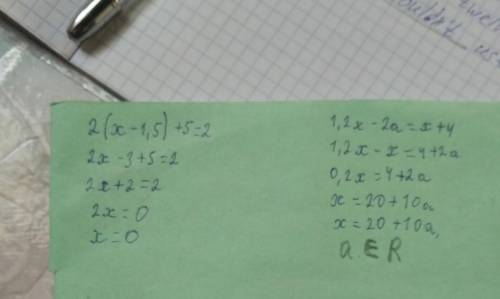 2(x-1,5)+5=2
2x-3+5=2
2x+2=2
2x=0
x=0
1,2x-2a=x+4
1,2x-x=4+2a
0,2x=4+2a
x=20+10a
x=20+10a,
a∈R